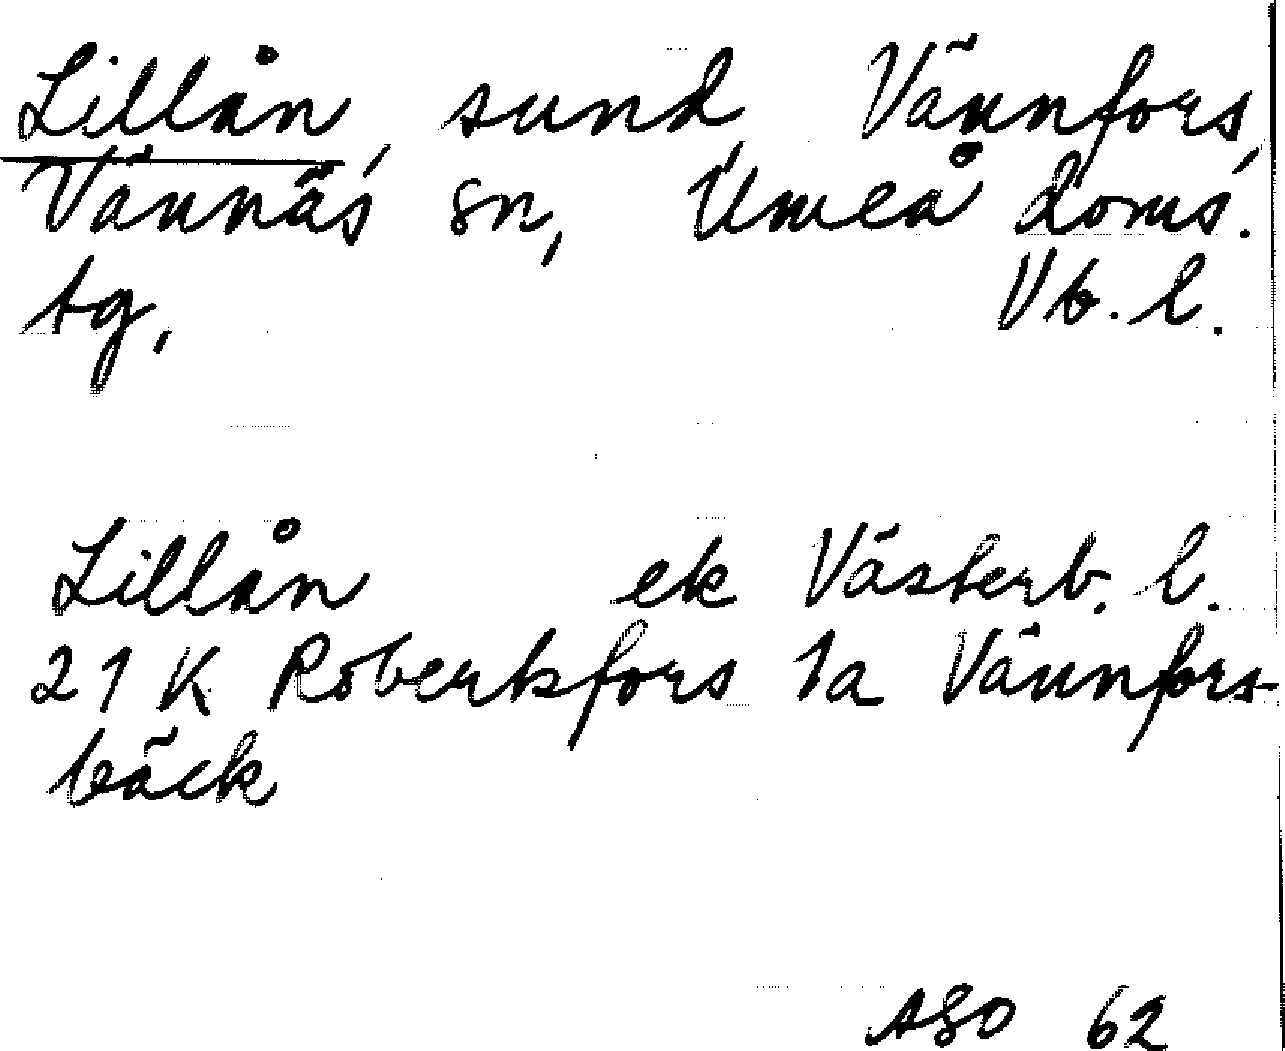 Lillån, sund, Vännfors,
Vännäs sn, Umeå doms.
tg, Vb. l.
Lillån ek Västerb. l.
21 K Robertsfors 1a Vännfors-
bäck
ASO 62